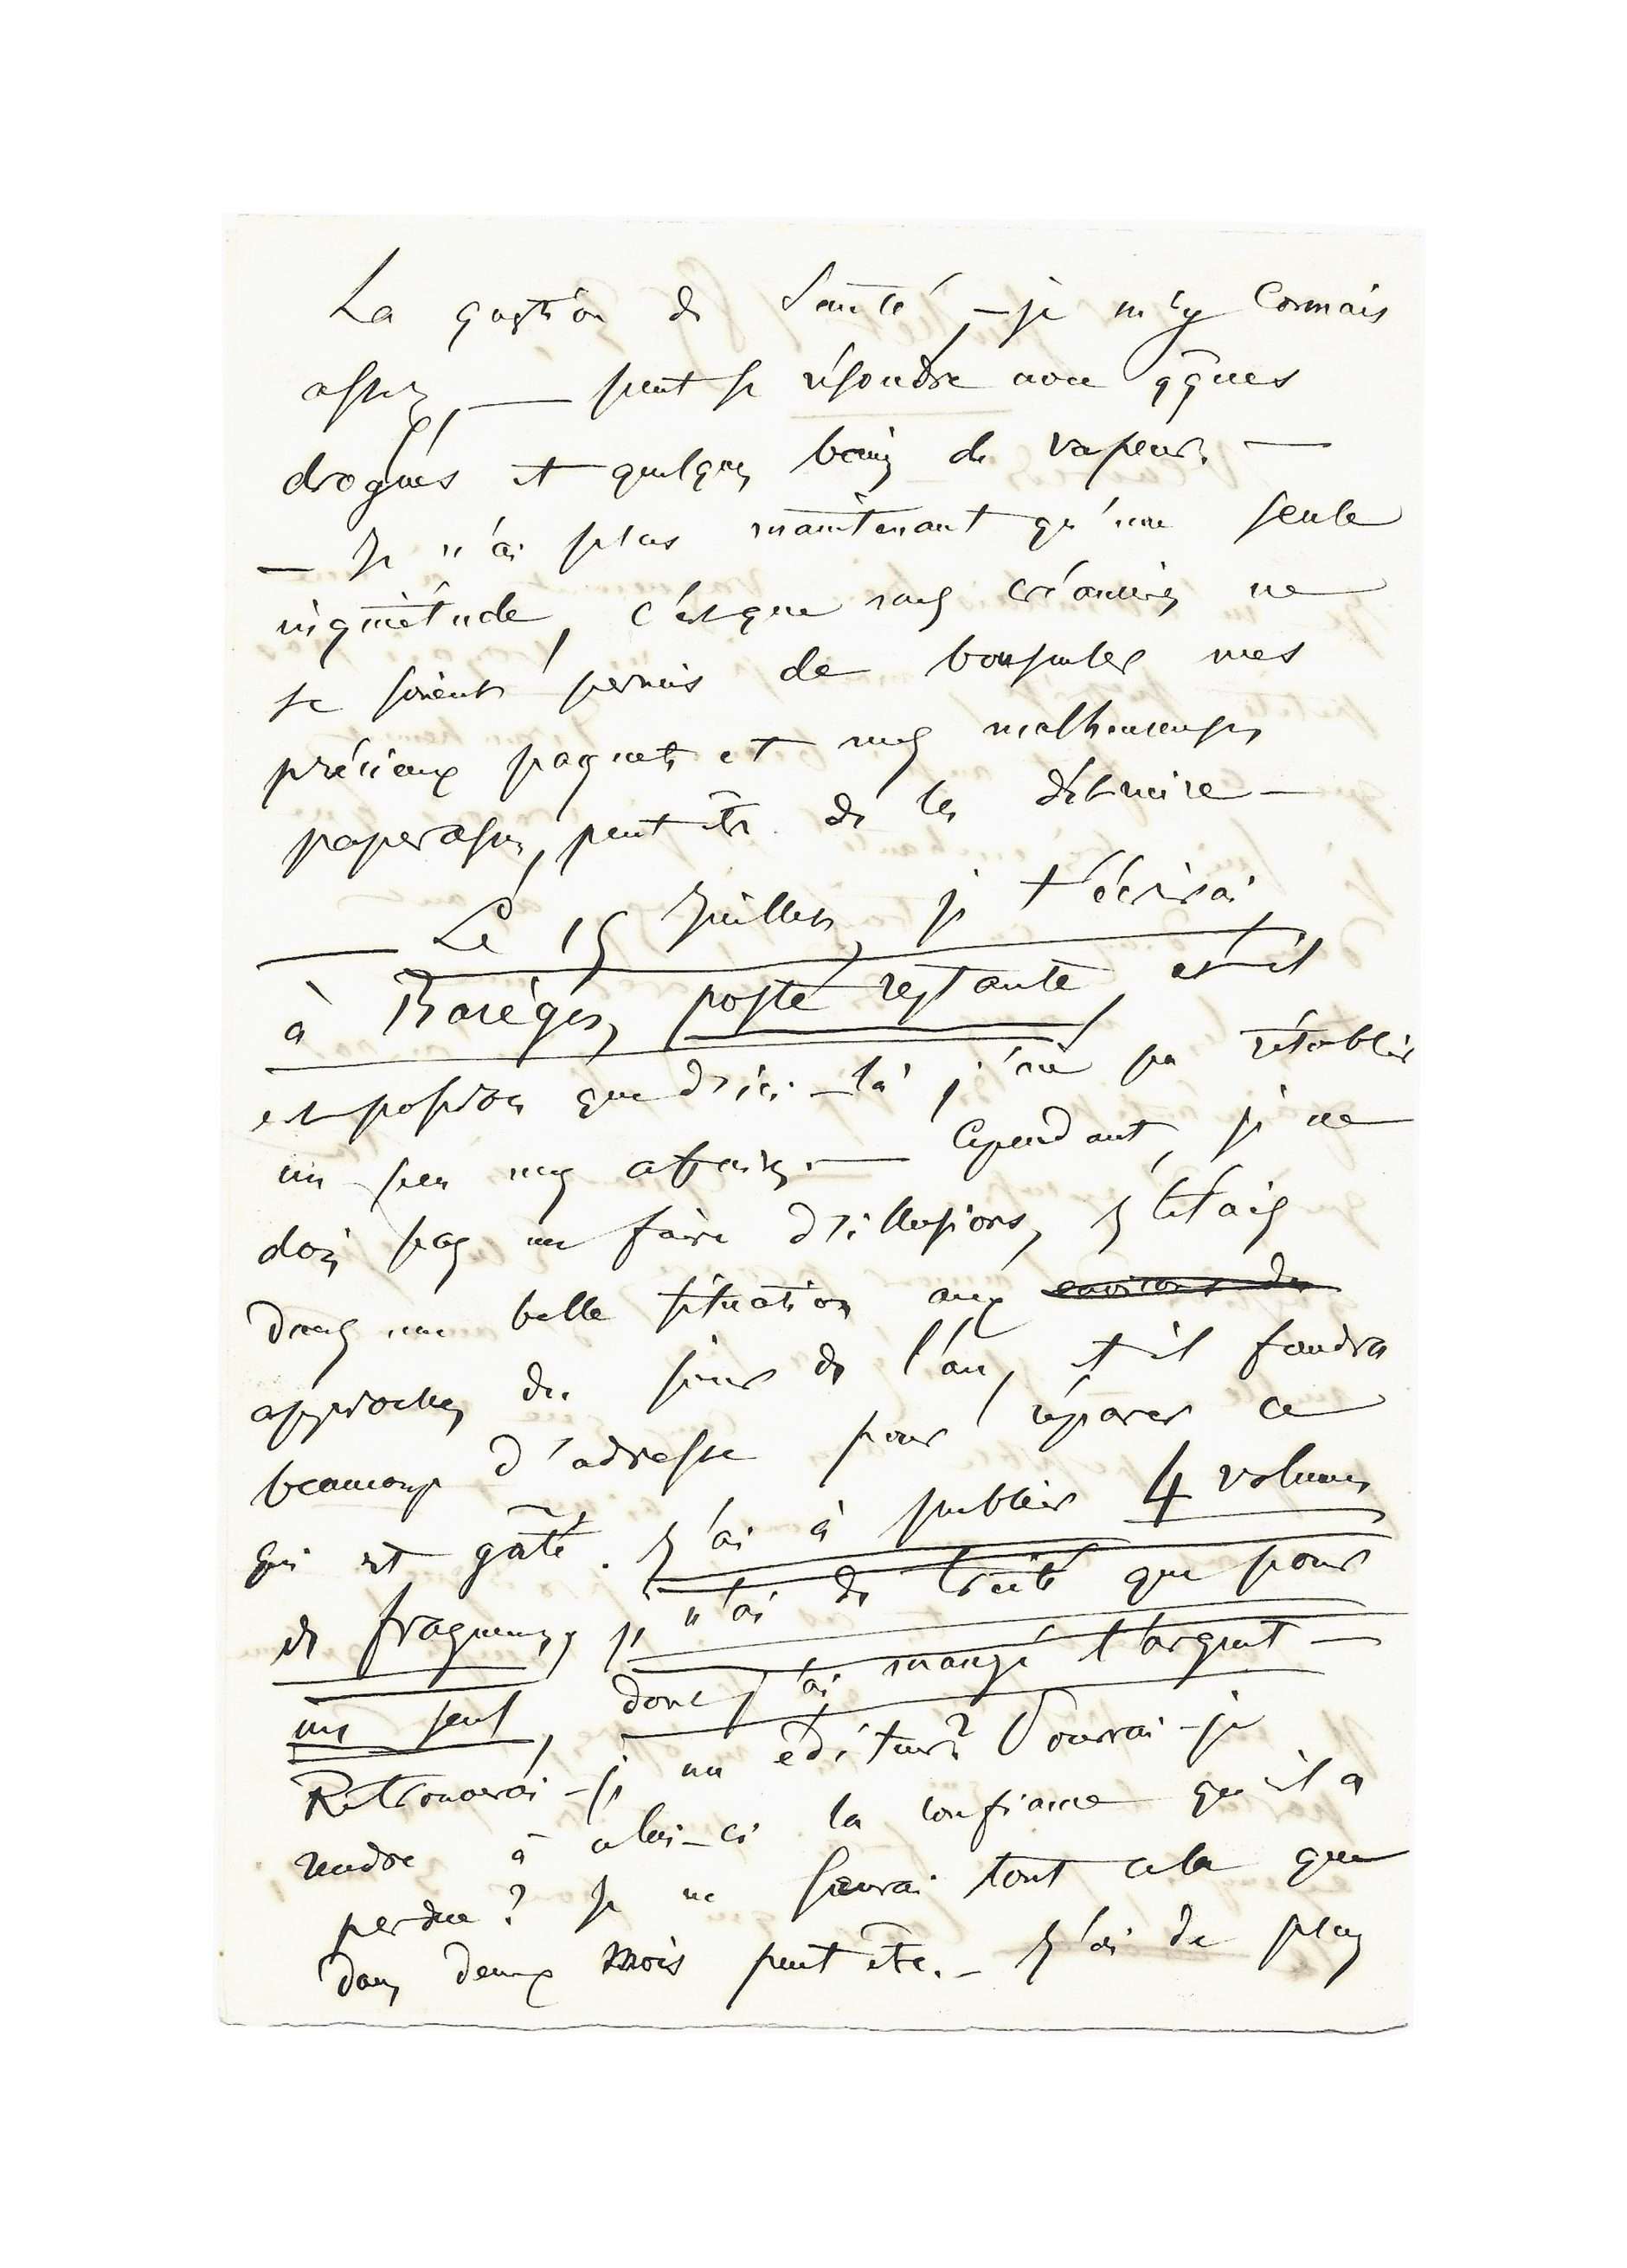 La question de Santé, — je m'y Connais
assez, — peut se résoudre avec qques
drogues et quelques bains de vapeur. —
— Je n'ai plus maintenant qu'une seule
inquiétude, c'est que mes créanciers ne
se soient permis de bousculer mes
précieux paquets et mes malheureuses
paperasses, peut être de les détruire —
— Le 15 Juillet, je t'écrirai
à Barèges, poste restante, et il
est possible que d'ici-là j'aie pu rétablir
un peu mes affaires. — Cependant, je ne
dois pas me faire d'illusions, J'étais
dans une belle situation aux environs du
approches du jour de l'an, et il faudra
beaucoup d'adresse pour réparer ce
qui est gâté. J'ai à publier 4 volumes
de fragments, je n'ai de traité que pour
un seul, dont j'ai mangé l'argent —
Retrouverai-je un éditeur? Pourrai-je
rendre à celui-ci la confiance qu'il a
perdue? Je ne saurai tout cela que
dans deux mois peut être. — J'ai de plus